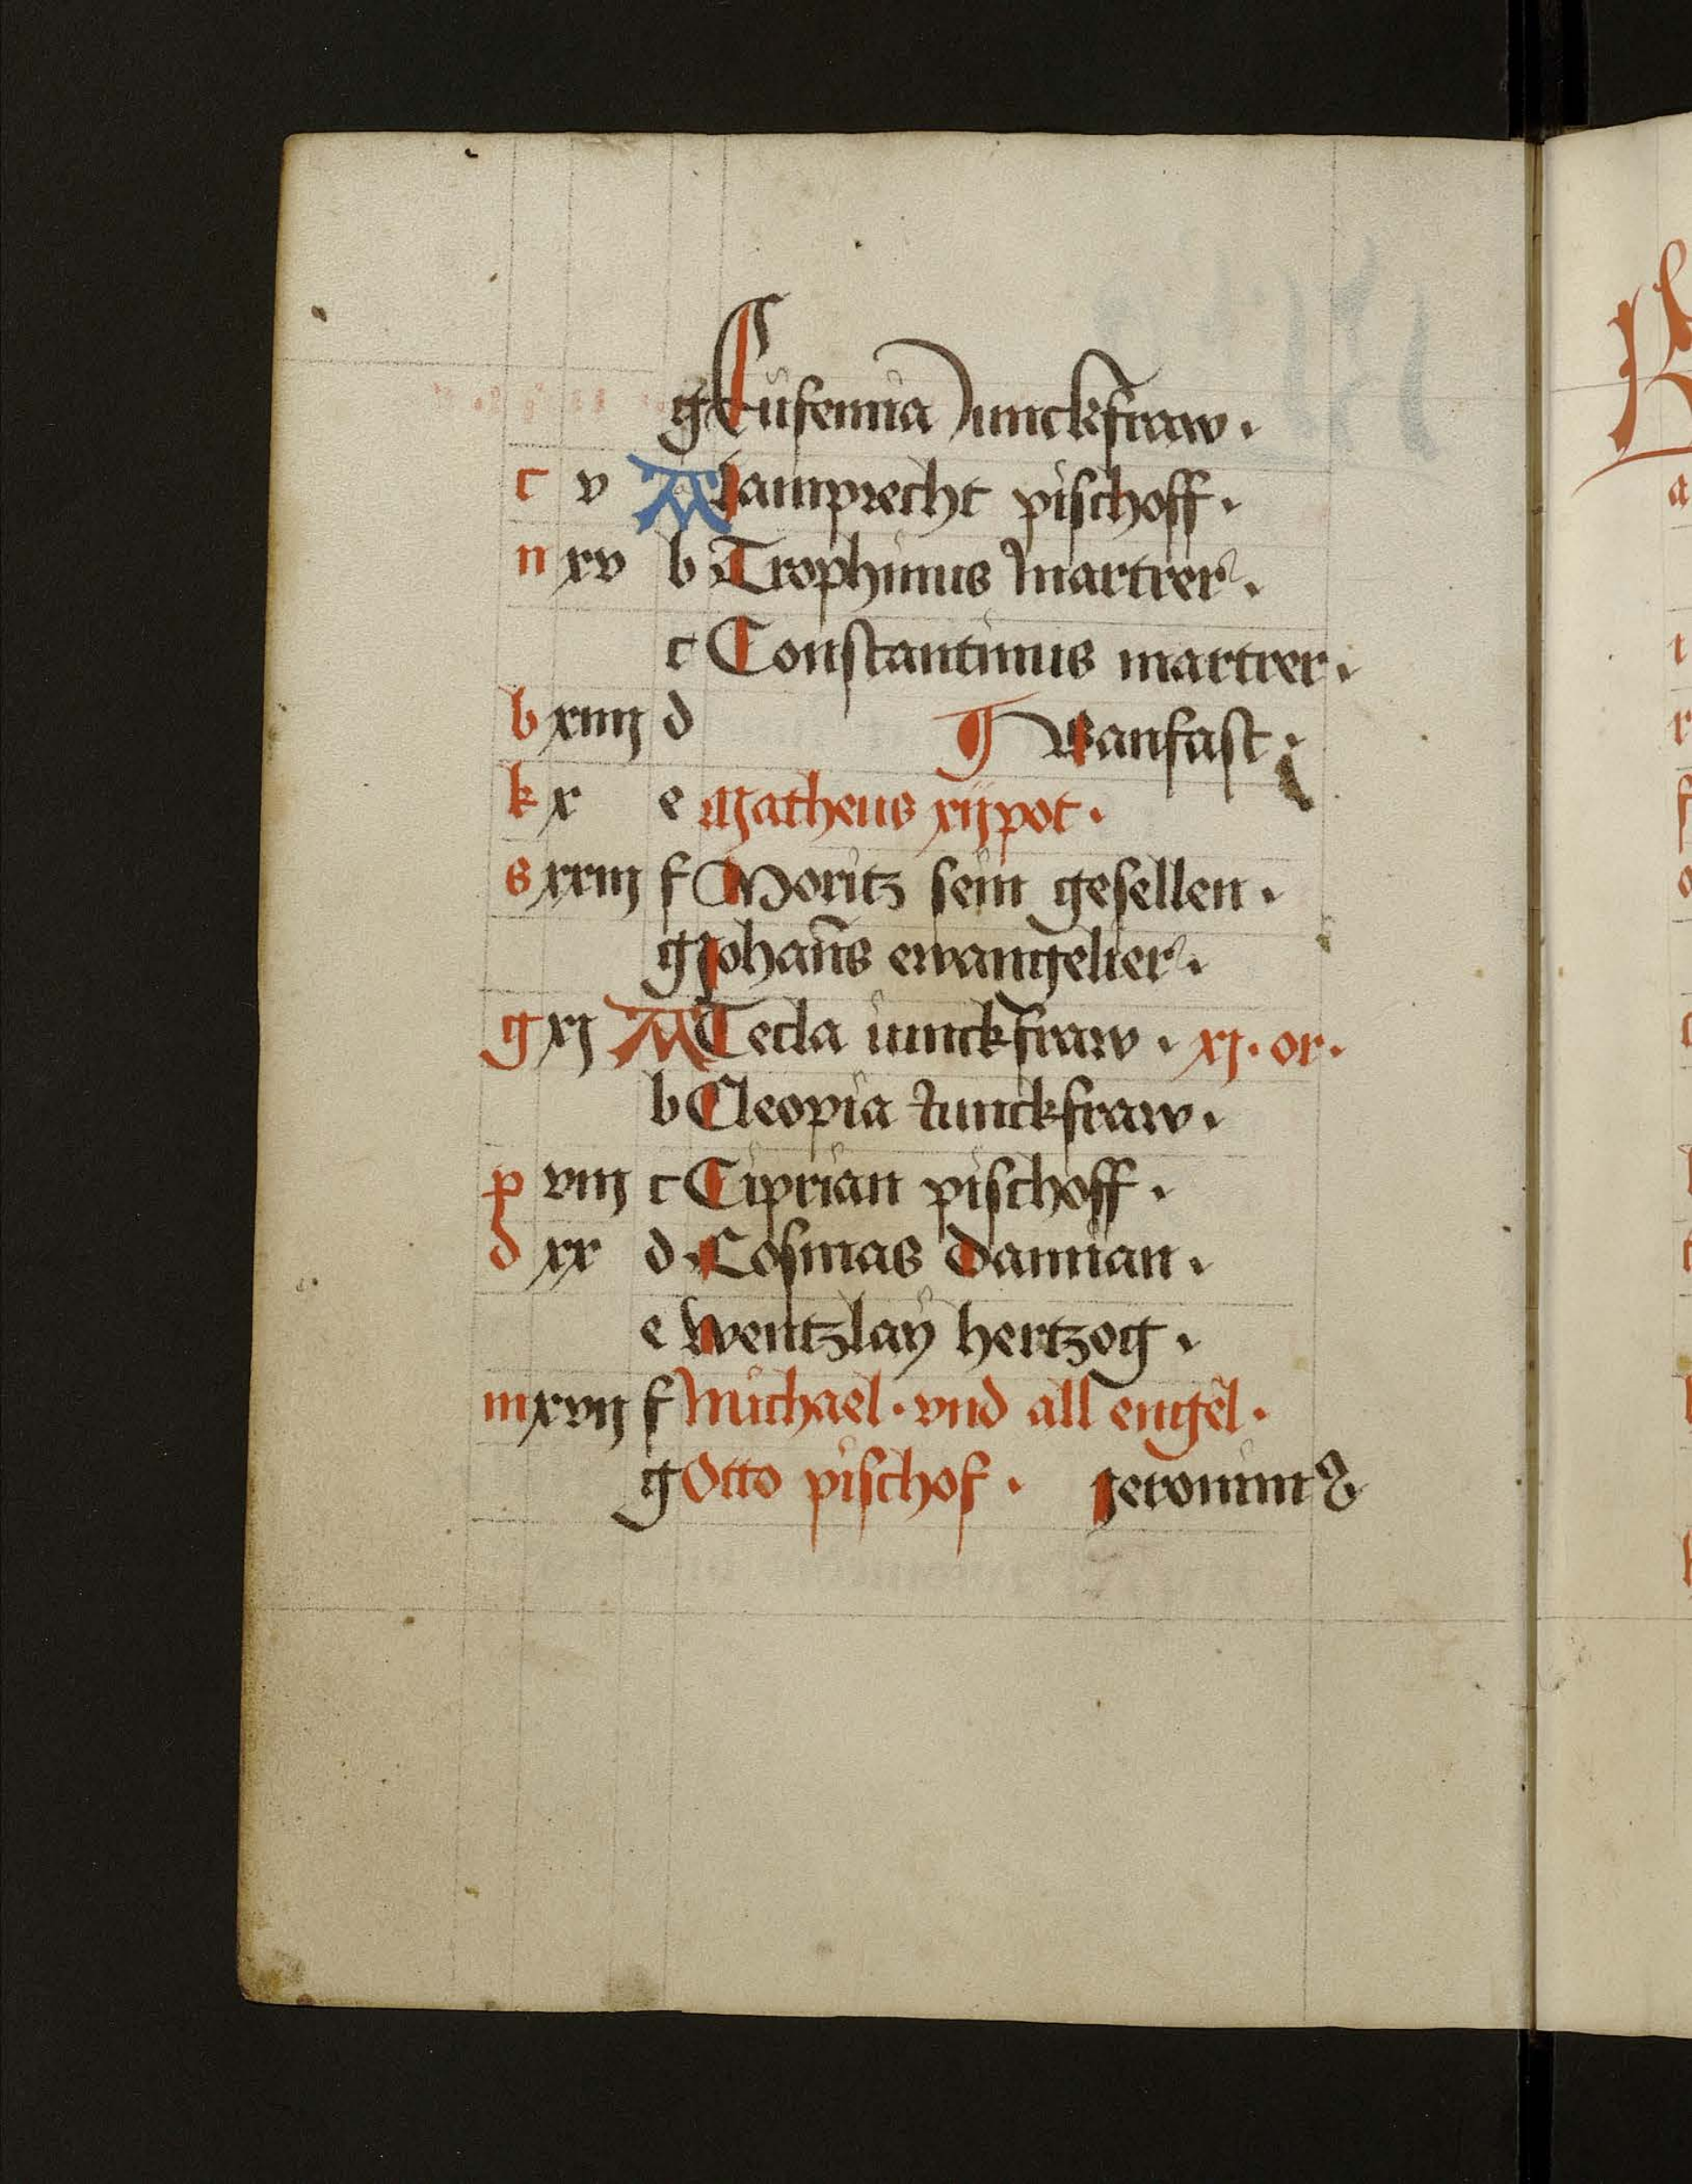 g Eufemia Junckfraw .
c v A Lamprecht pischoff .
n xv b Trophimus martrer .
c Constantinus martrer .
b xiiij d Vanfast .
k x e Matheus xijpot .
s xxiij f Moritz sein gesellen .
g Johañs ewangelier .
g xj A Tecla iunckfraw . xj . or .
b Cleopia Junckfraw .
p viij c Ciprian pischoff .
d xx d Cosmas Damian .
e wentzlaÿ hertzog .
m xvij f Michael . vnd all engel .
g Otto pischof . Jeronimꝰ